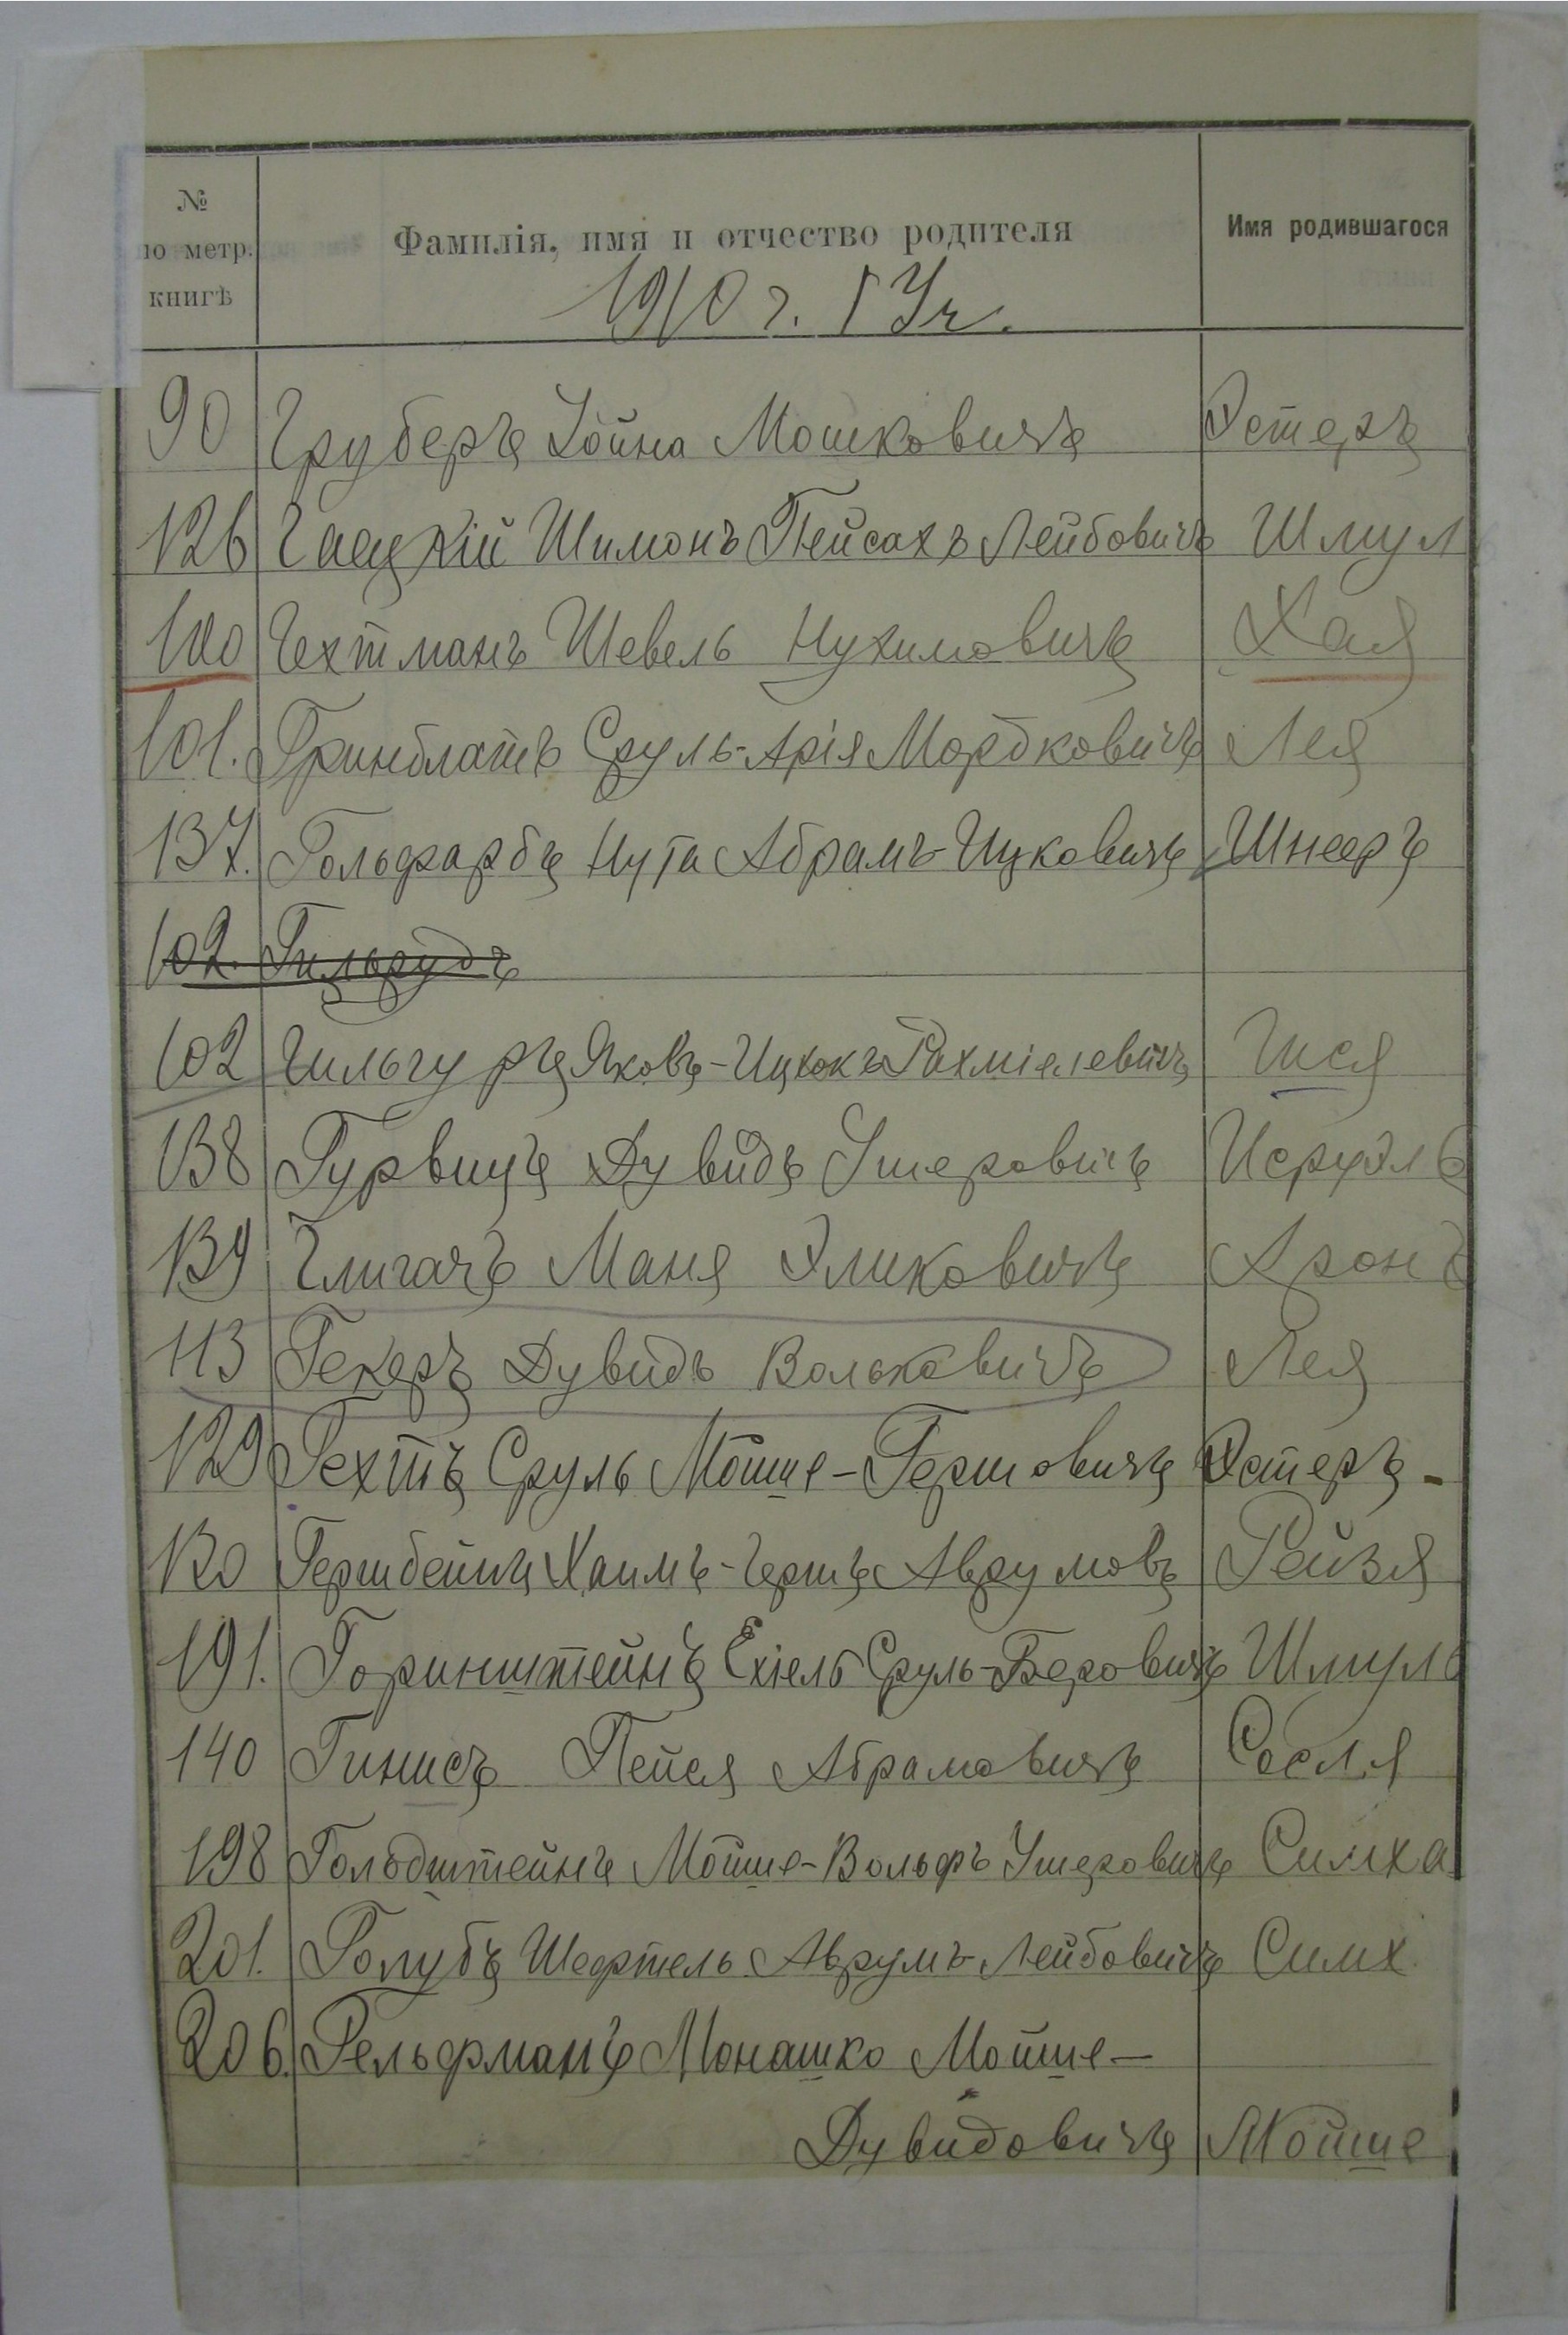 №
по метр.
книгѣ
Фамилія, имя и отчество родителя
Имя родившагося
1910 г. I Уч.
90 Груберъ Іойна Мошковичъ Эстеръ
126 Гацкій Шимонъ Пейсахъ Лейбовичъ Шмул
100 Гехтманъ Шевель Нухимовичъ Хая
101. Гринблатъ Сруль-Арія Мордковичъ Лея
137. Гольдфарбъ Нута Абрамъ-Ицковичъ Шнееръ
102. Гильгудъ
102 Гильгуръ Яковъ-Ицхокъ Рахміелевичъ Шся
138 Гурвицъ Дувидъ Ушеровичъ Исруэль
139 Глигачъ Маня Эликовичъ Аронъ
113 Гекеръ Дувидъ Вольковичъ Лея
129 Гехтъ Сруль Мойше-Гершовичъ Эстеръ-
130 Гершбейнъ Хаимъ-Гершъ Аврумовъ Рейзя
191. Горинштейнъ Ехіель Сруль-Беровичъ Шмуль
140 Гинисъ Пейся Абрамовичъ Сосля
198 Гольдштейнъ Мойше-Вольфъ Ушеровичъ Симха
201. Голубъ Шефтель Аврумъ-Лейбовичъ Симх.
206. Гельфманъ Монашко Мойше-
Дувидовичъ Мойше